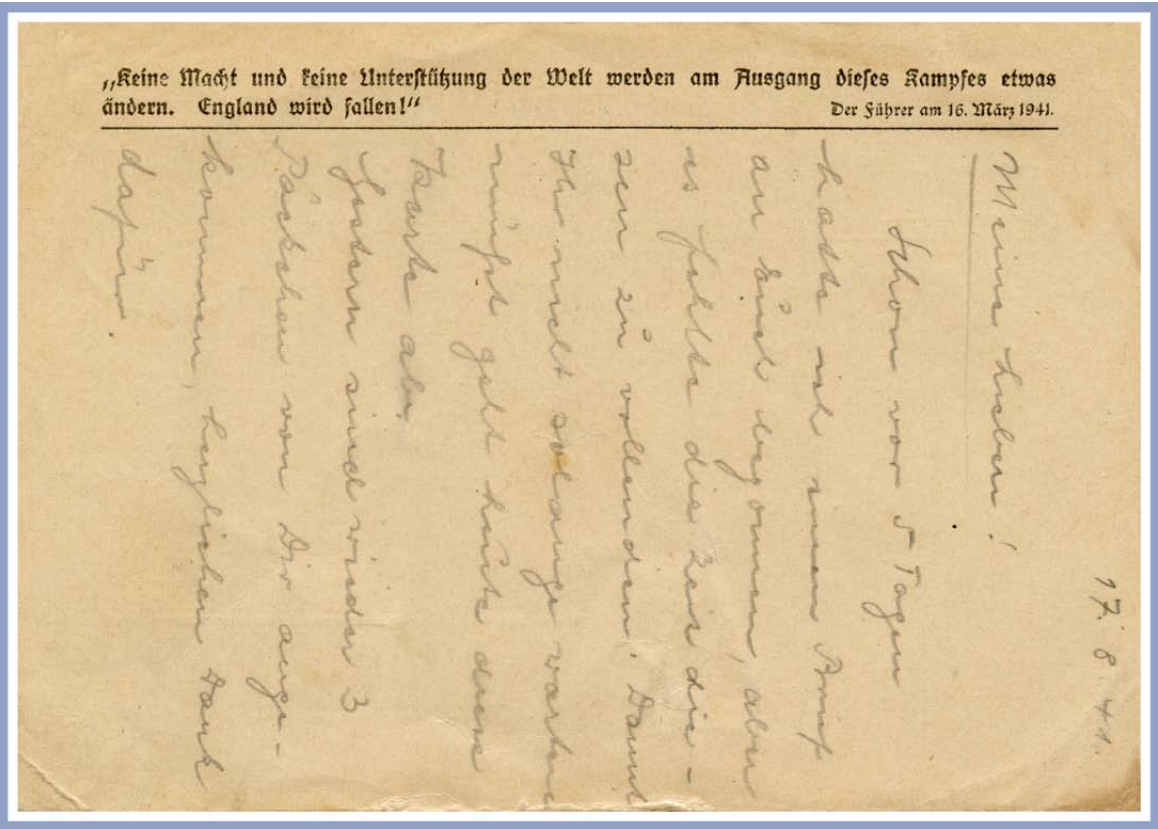 „Keine Macht und keine Unterstützung der Welt werden am Ausgang dieses Kampfes etwas
ändern. England wird fallen!“ Der Führer am 16. März 1941.
17. 8. 41.
Meine Lieben!
Schon vor 5 Tagen
hatte ich einen Brief
an Euch begonnen, aber
es fehlte die Zeit die-
sen zu vollenden. Damit
Ihr nicht solange warten
müßt geht heute diese
Karte ab.
Gestern sind wieder 3
Päckchen von Dir ange-
kommen, herzlichen Dank
dafür.